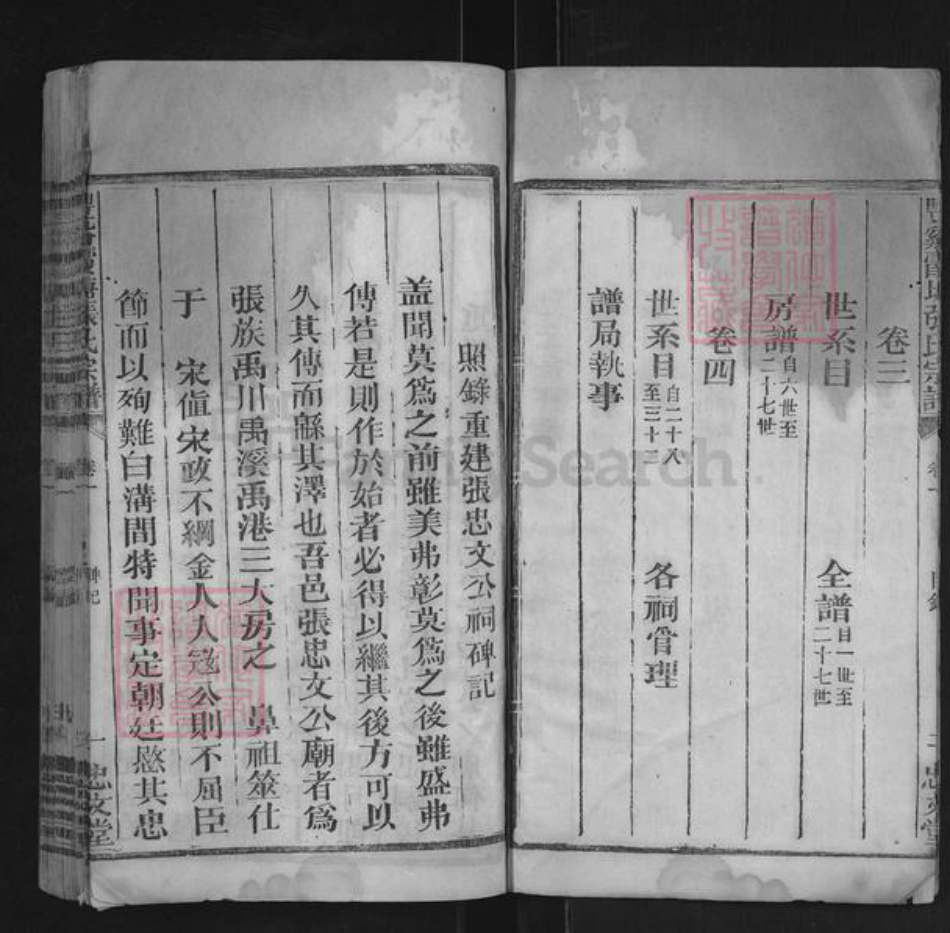 卷三
世系目 全譜自一世至二十七世
房譜自六世至二十七世
卷四
世系目自二十八至三十二 各祠管理
譜局執事
照錄重建張忠文公祠碑記
盖聞莫爲之前雖美弗彰莫爲之後雖盛弗
傳若是則作於始者必得以繼其後方可以
久其傳而繇其澤也吾邑張忠文公廟者爲
張族禹川禹溪禹港三大房之 鼻祖筮仕
于 宋值宋政不綱金人入寇公則不屈臣
節而以殉難白溝間特聞事定朝廷愍其忠
張氏宗譜
卷一
碑記
一
忠文堂
FamilySearch